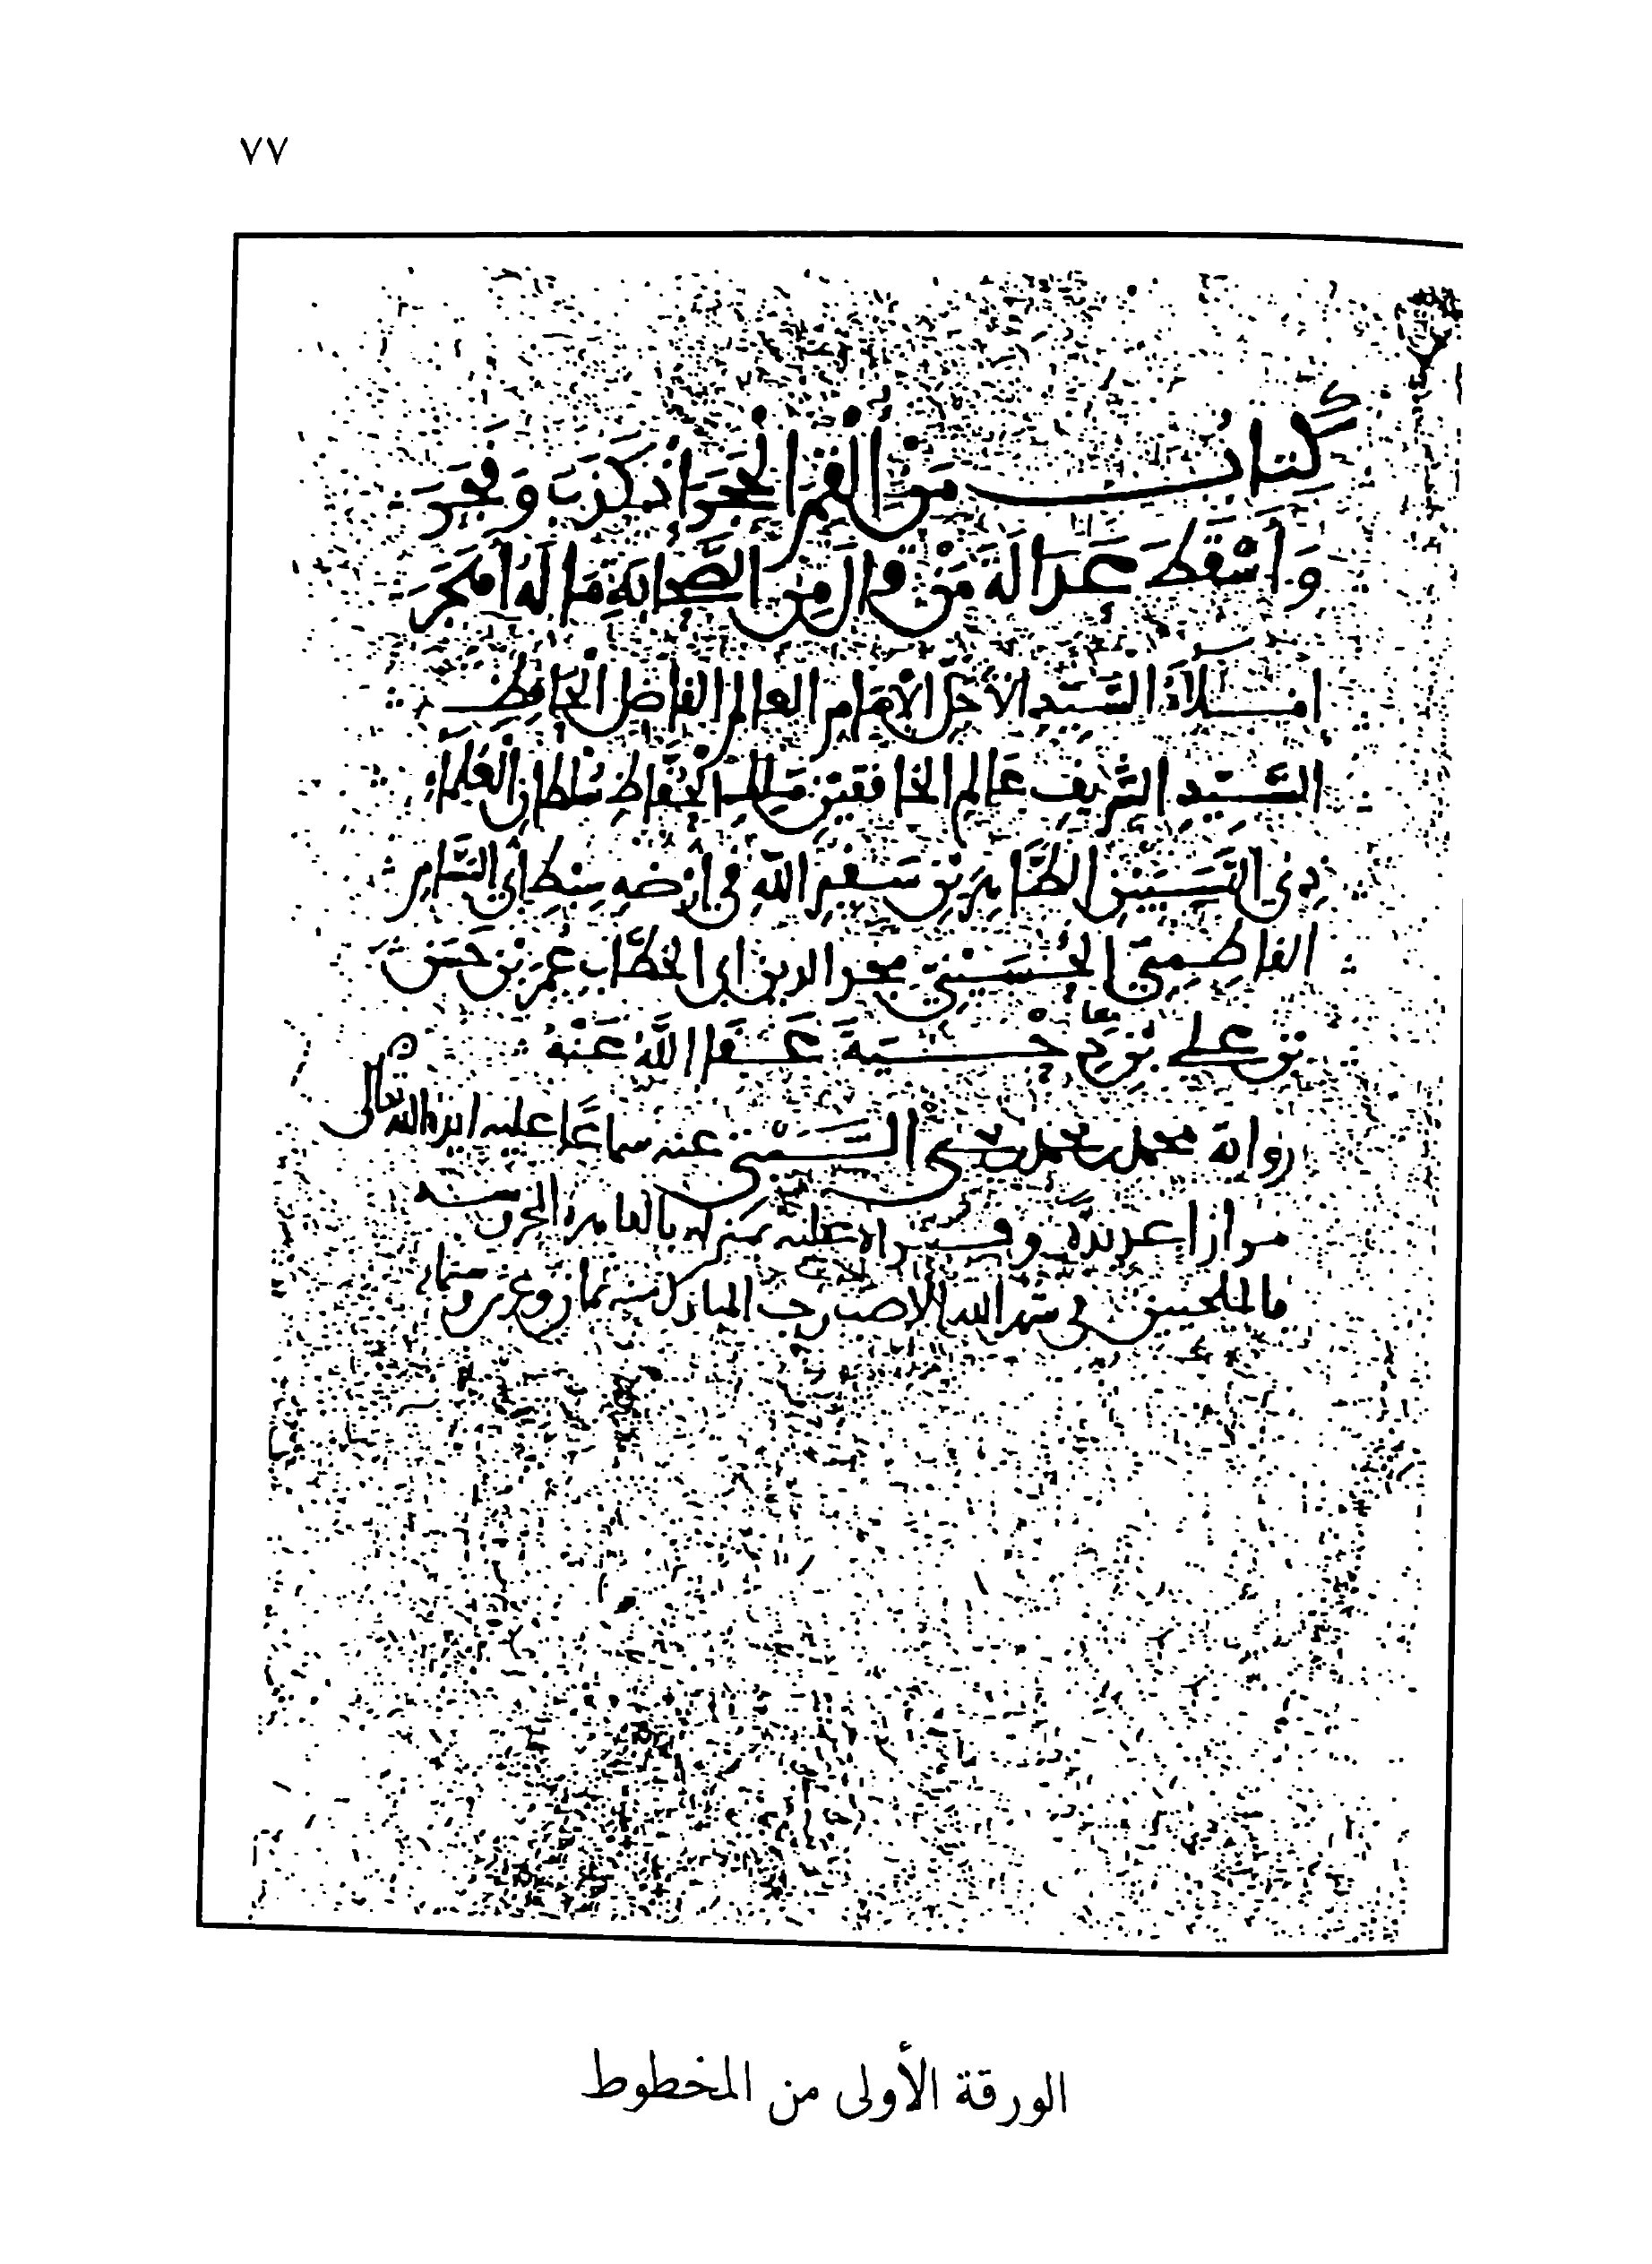 ٧٧
كتاب من ألقم الحجر إذ كذب وفجر
وأسقط عدالة من قال من الصحابة ما له أهجر
إملاء السيد الأجل الإمام العالم الفاضل الحافظ
السيد الشريف عالم الخافقين ملك الحفاظ سلطان العلماء
ذي النسبين الطاهرين سفير الله في أرضه سبط أبي البسام
الفاطمي الحسيني مجد الدين أبي الخطاب عمر بن حسن
بن علي بن دحية عفا الله عنه
رواية محمد بن محمد بن عنه سماعا عليه أيده الله تعالى
مرارا عديدة وقراءة عليه بمنزله بالقاهرة
في شهر الله الأصب رجب المبارك سنة وعشرين وستمائة
الورقة الأولى من المخطوط